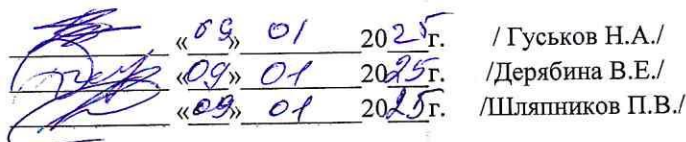 «09» 01 2025г. / Гуськов Н.А./
«09» 01 2025г. /Дерябина В.Е./
«09» 01 2025г. /Шляпников П.В./